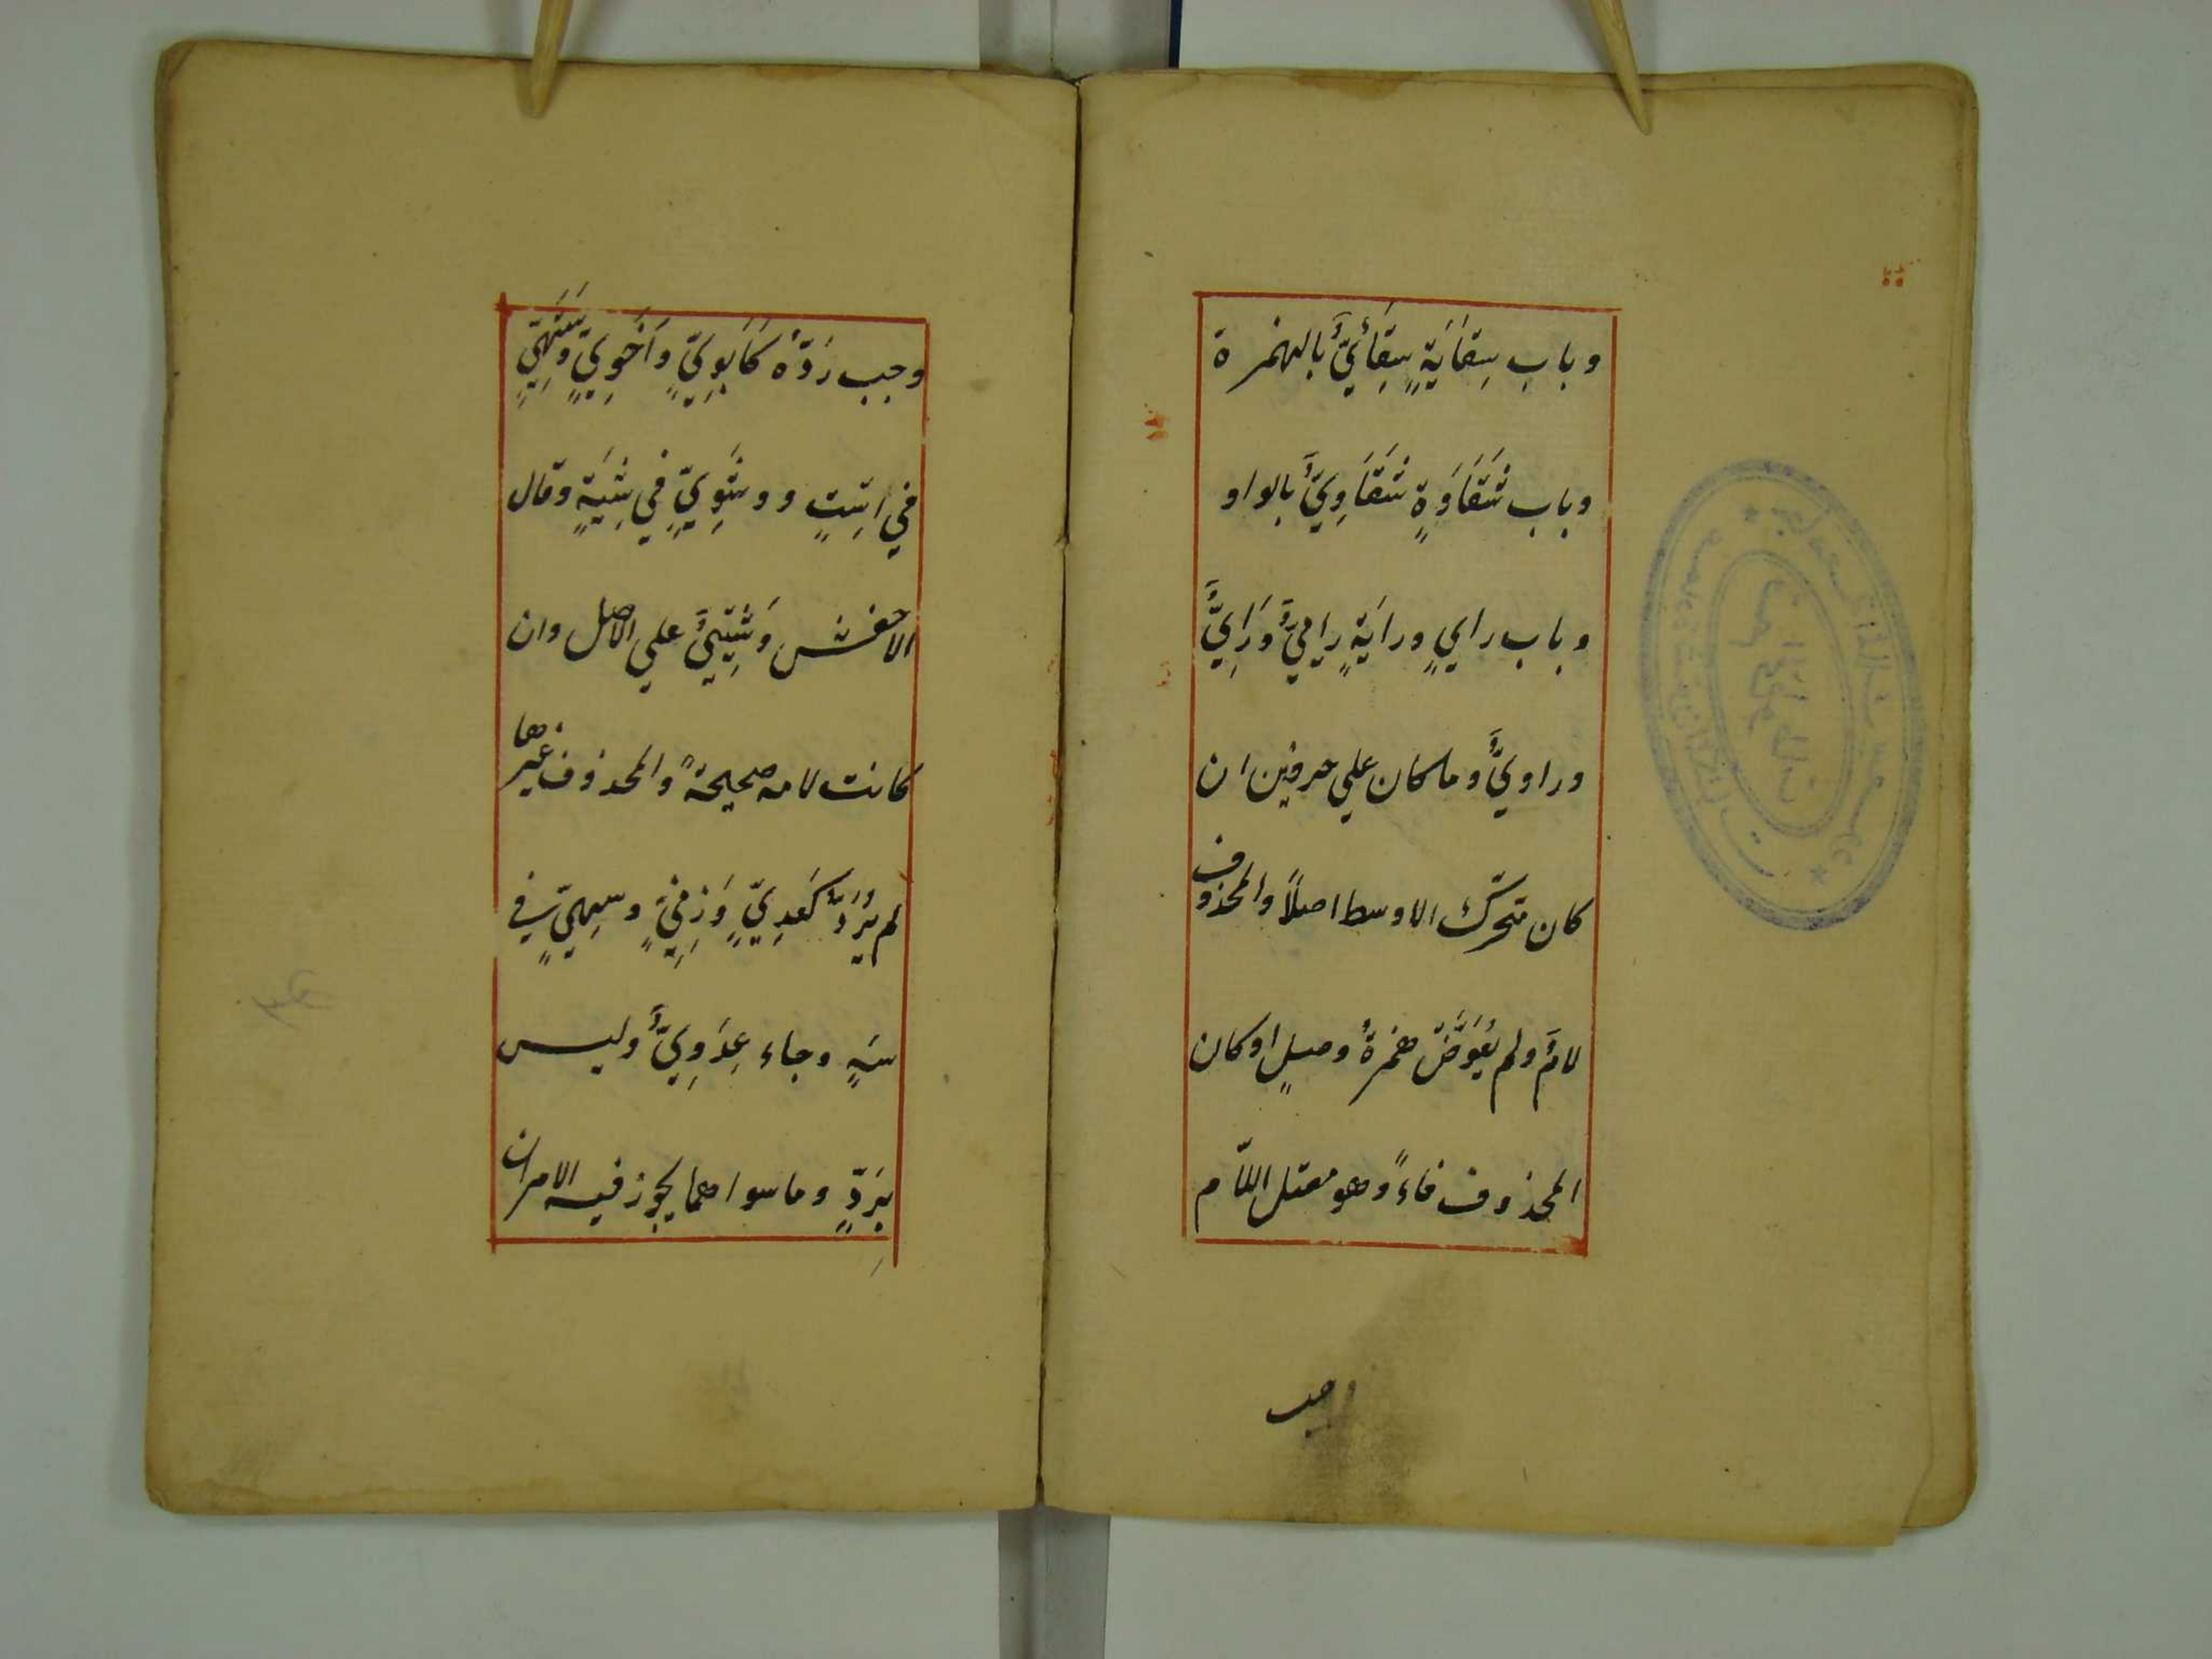 وباب سِقَايَةٍ سِقَائِيٌّ بالهمزة
وباب شَقَاوَةٍ شَقَاوِيٌّ بالواو
وباب رايٍ ورايَةٍ راميٌّ وَرَايِيٌّ
وراويٌّ وماكان علي حرفين ان
كان متحرّك الاوسط اصلاً والمحذوف
لامٌ ولم يُعَوَّضْ همزةُ وصلٍ اوكان
المحذوف فاءً وهو معتل اللّام
وجب
وجب رَدُّهُ كَاَبَوِيٍّ وَاَخَوِيٍّ وَسَتَهِيٍّ
في اِسْتٍ و وِشَوِيٍّ في شِيَةٍ وقال
الاخفش وِشْيِيٌّ علي الاصل وان
كانت لامه صحيحةً والمحذوف غيرها
لم يُرَدَّ كَعِدِيٍّ وَزِنِيٍّ وسَهِيٍّ في
سَهٍ وجاء عِدَوِيٌّ وليس
بِرَدٍّ وما سواهما يجوز فيه الامران